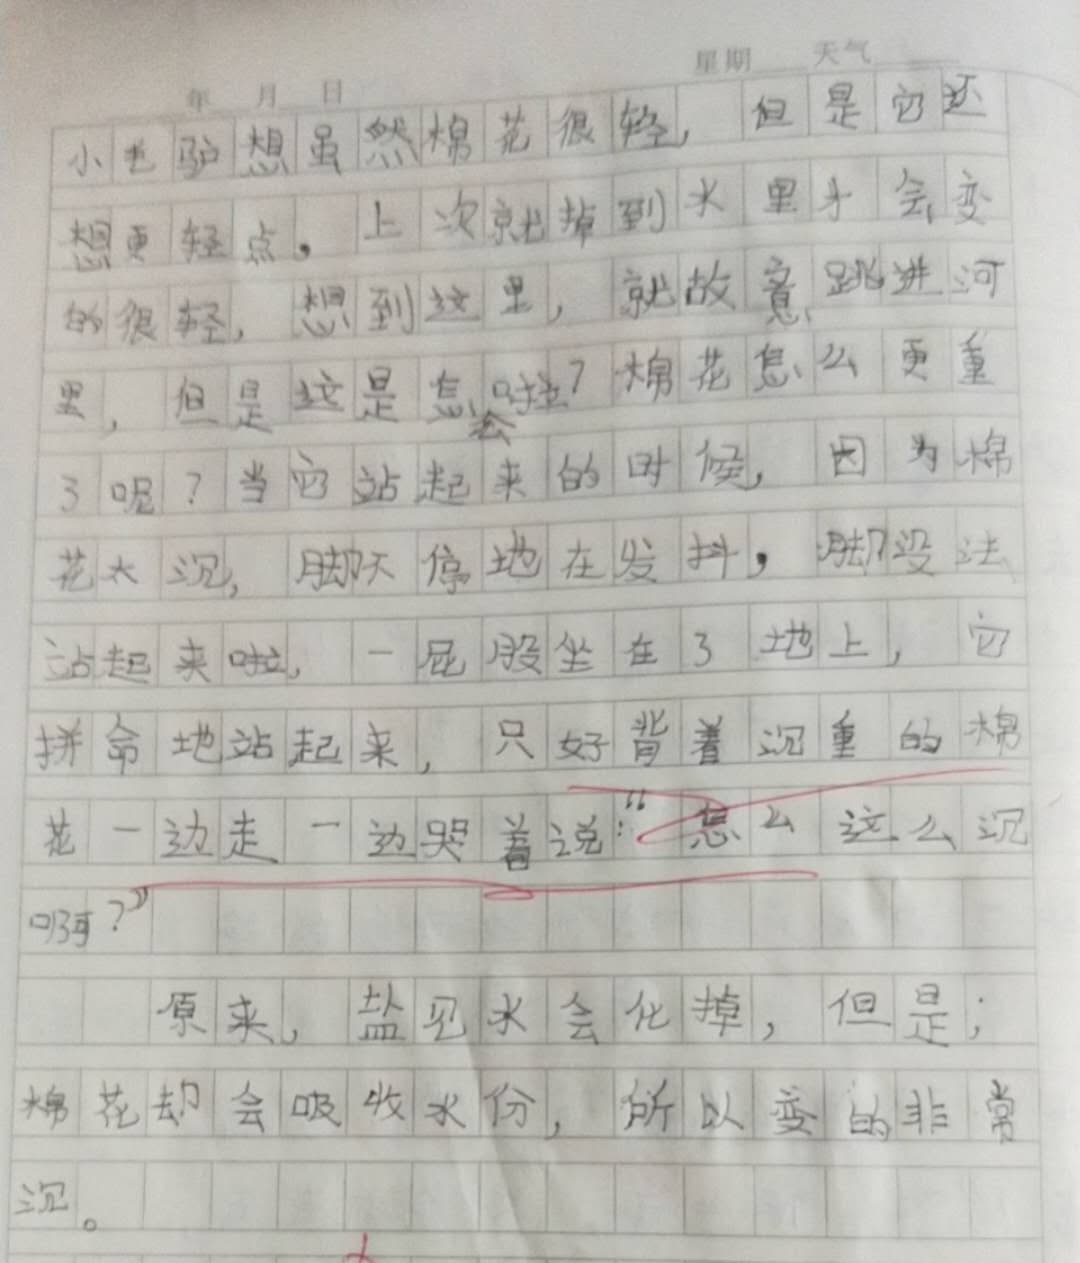 年 月 日 星期 天气
小毛驴想虽然棉花很轻，但是它还
想更轻点。上次就掉到水里才会变
的很轻，想到这里，就故意跳进河
里，但是这是怎会啦？棉花怎么更重
了呢？当它站起来的时候，因为棉
花太沉，脚不停地在发抖，脚没法
站起来啦，一屁股坐在了地上，它
拼命地站起来，只好背着沉重的棉
花一边走一边哭着说：“怎么这么沉
啊？”
原来，盐见水会化掉，但是；
棉花却会吸收水份，所以变的非常
沉。